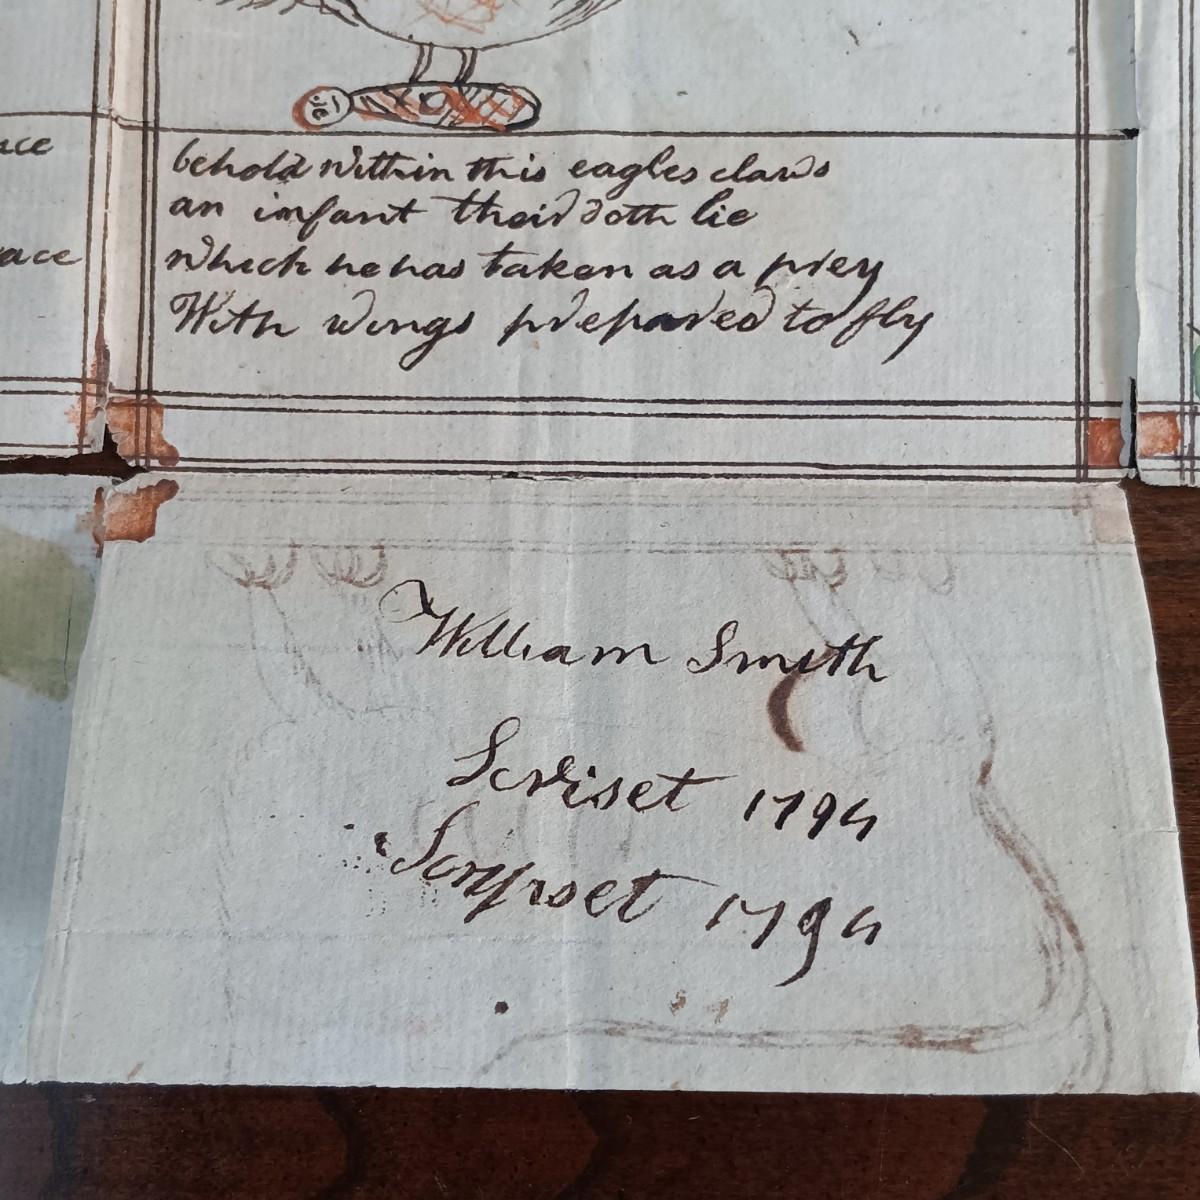 ace
behold within this eagles claws
an infant their doth lie
ace
which he has taken as a prey
With wings prepared to fly
William Smith
Scriset 1794
Somrset 1794